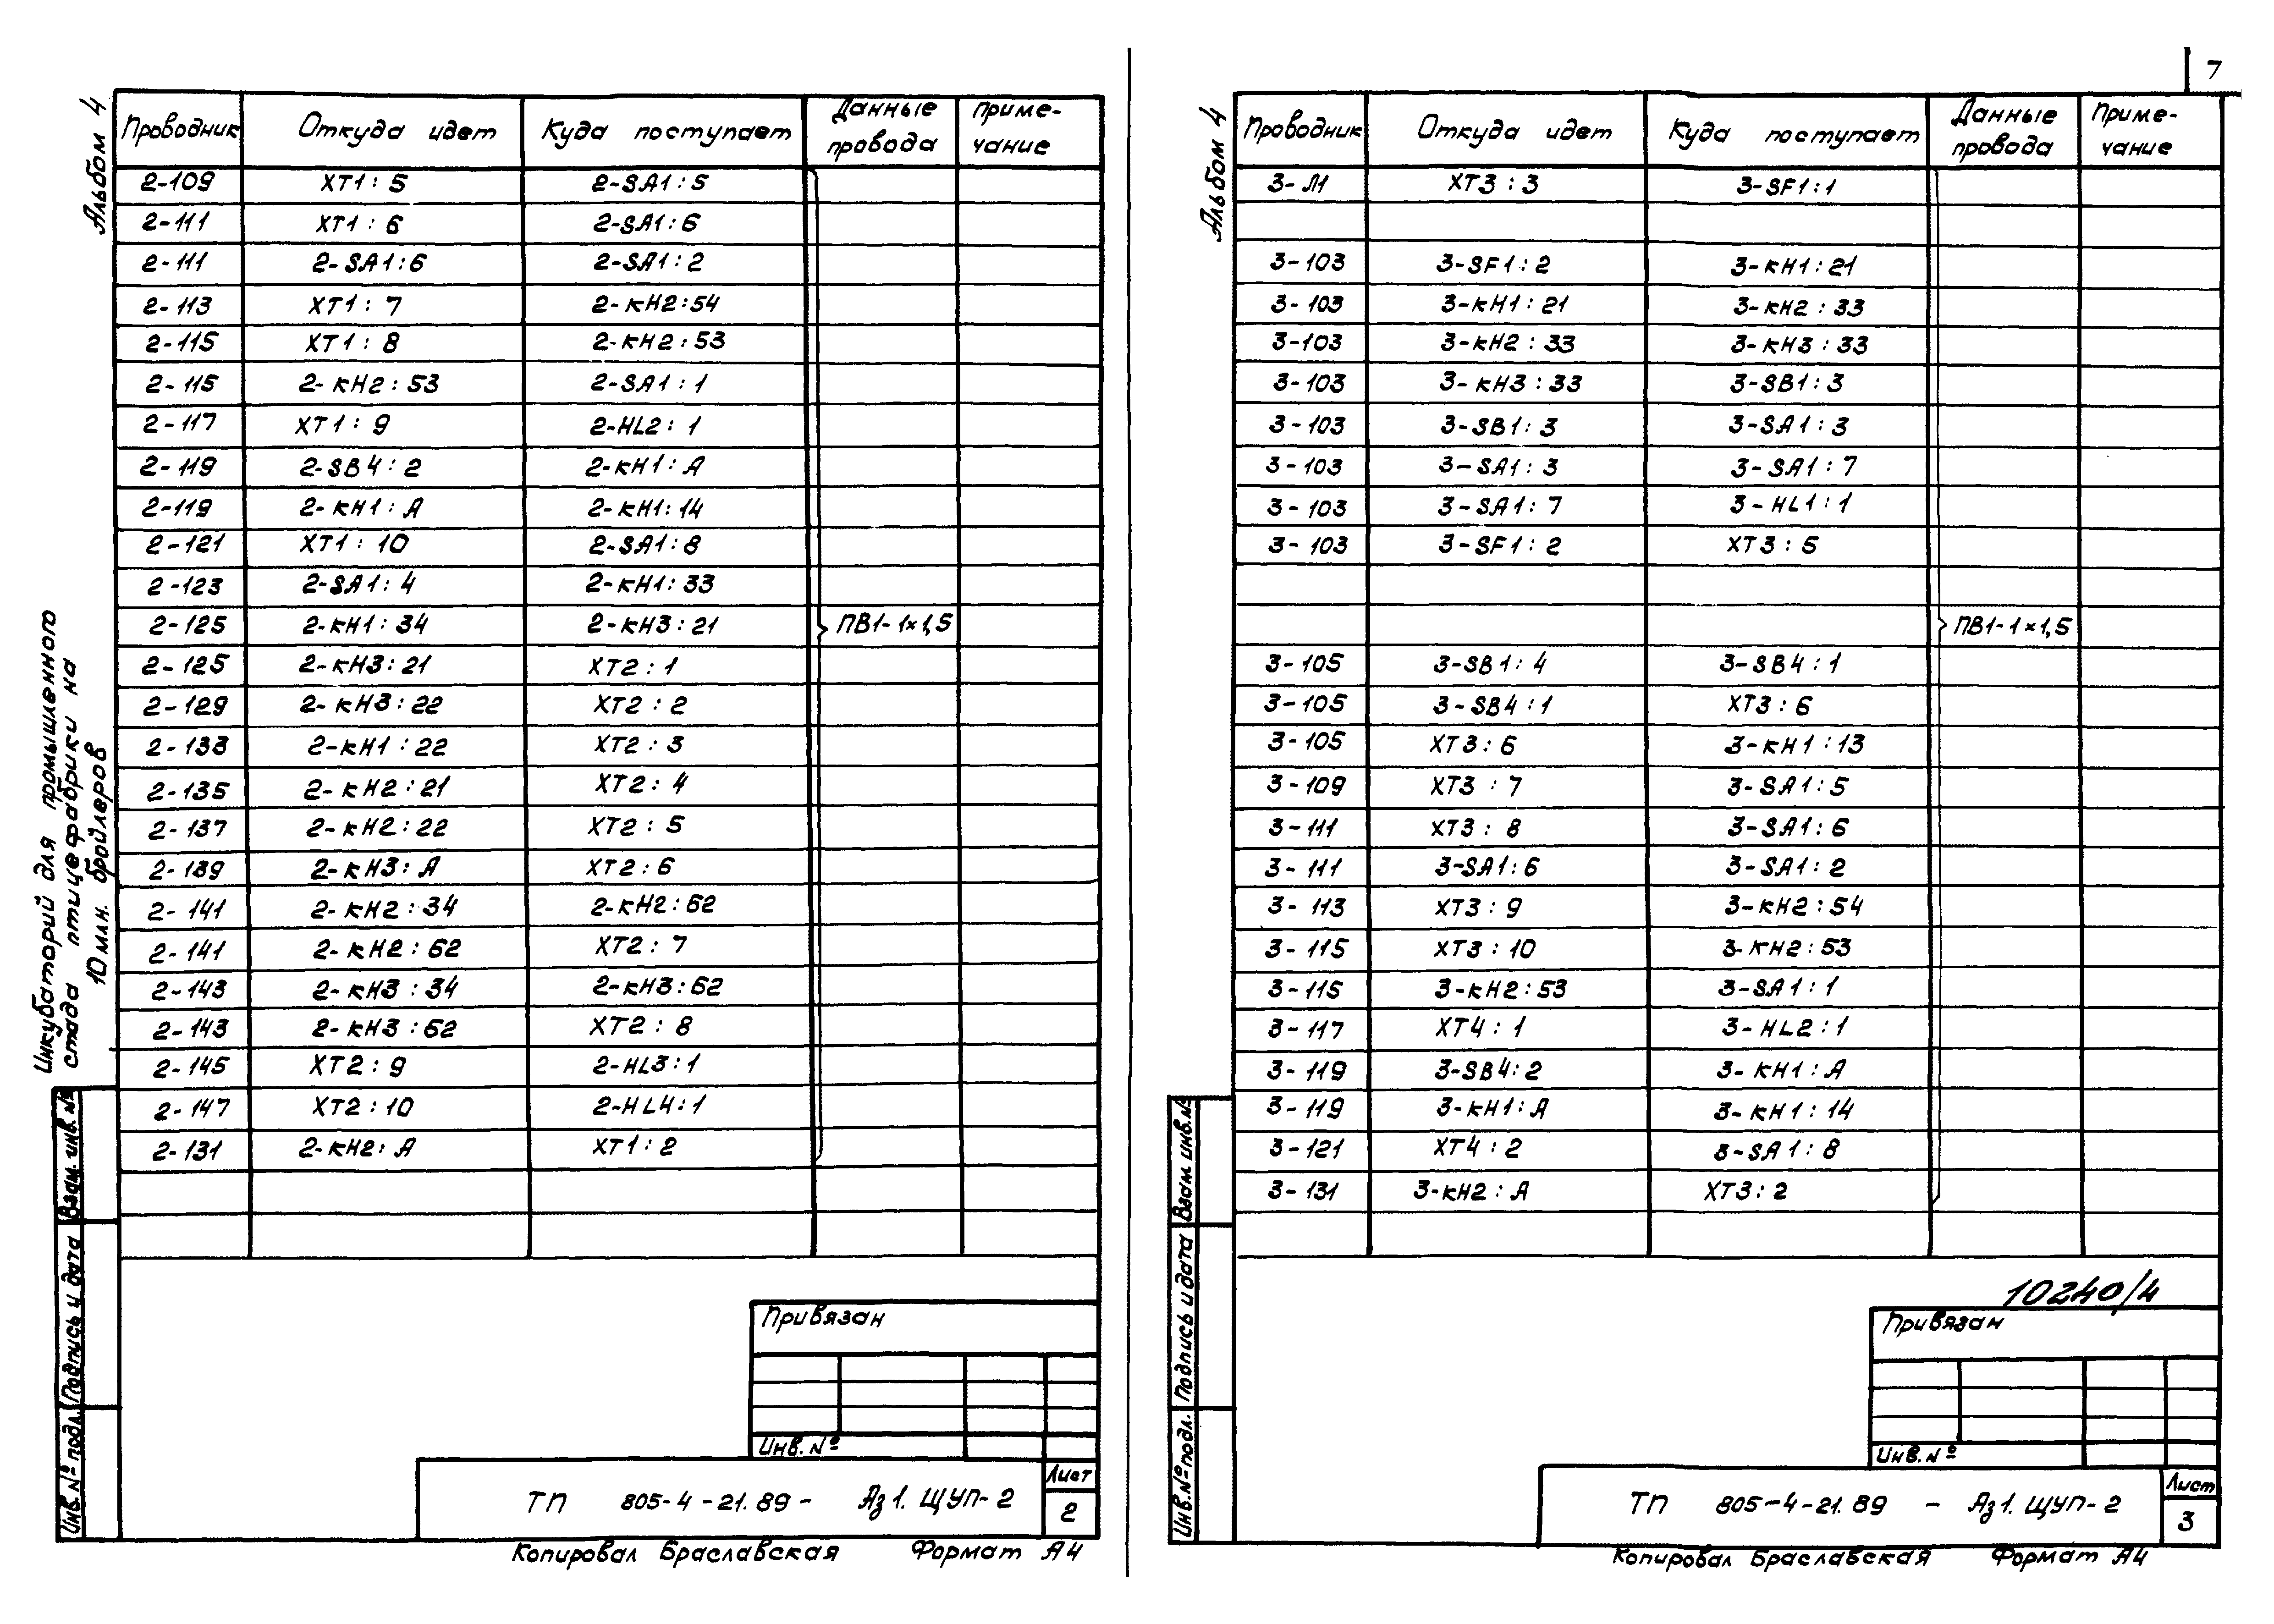 7
Альбом 4
Инкубаторий для промышленного
стада птицефабрики на
10 млн. бройлеров
Проводник Откуда идет Куда поступает Данные провода Приме-чание
2-109 XT1:5 2-SA1:5
2-111 XT1:6 2-SA1:6
2-111 2-SA1:6 2-SA1:2
2-113 XT1:7 2-КН2:54
2-115 XT1:8 2-КН2:53
2-115 2-КН2:53 2-SA1:1
2-117 XT1:9 2-HL2:1
2-119 2-SB4:2 2-КН1:А
2-119 2-КН1:А 2-КН1:14
2-121 XT1:10 2-SA1:8
2-123 2-SA1:4 2-КН1:33
2-125 2-КН1:34 2-КН3:21 ПВ1-1×1,5
2-125 2-КН3:21 XT2:1
2-129 2-КН3:22 XT2:2
2-133 2-КН1:22 XT2:3
2-135 2-КН2:21 XT2:4
2-137 2-КН2:22 XT2:5
2-139 2-КН3:А XT2:6
2-141 2-КН2:34 2-КН2:62
2-141 2-КН2:62 XT2:7
2-143 2-КН3:34 2-КН3:62
2-143 2-КН3:62 XT2:8
2-145 XT2:9 2-HL3:1
2-147 XT2:10 2-HL4:1
2-131 2-КН2:А XT1:2
Взам. инв.№
Подпись и дата
Инв.№ подл.
Привязан
Инв.№
ТП 805-4-21.89- Аз1.ЩУП-2
Лист
2
Копировал Браславская Формат А4
Альбом 4
Проводник Откуда идет Куда поступает Данные провода Приме-чание
3-Л1 XT3:3 3-SF1:1
3-103 3-SF1:2 3-КН1:21
3-103 3-КН1:21 3-КН2:33
3-103 3-КН2:33 3-КН3:33
3-103 3-КН3:33 3-SB1:3
3-103 3-SB1:3 3-SA1:3
3-103 3-SA1:3 3-SA1:7
3-103 3-SA1:7 3-HL1:1
3-103 3-SF1:2 XT3:5
ПВ1-1×1,5
3-105 3-SB1:4 3-SB4:1
3-105 3-SB4:1 XT3:6
3-105 XT3:6 3-КН1:13
3-109 XT3:7 3-SA1:5
3-111 XT3:8 3-SA1:6
3-111 3-SA1:6 3-SA1:2
3-113 XT3:9 3-КН2:54
3-115 XT3:10 3-КН2:53
3-115 3-КН2:53 3-SA1:1
3-117 XT4:1 3-HL2:1
3-119 3-SB4:2 3-КН1:А
3-119 3-КН1:А 3-КН1:14
3-121 XT4:2 3-SA1:8
3-131 3-КН2:А XT3:2
Взам инв.№
Подпись и дата
Инв.№ подл.
10240/4
Привязан
Инв.№
ТП 805-4-21.89 - Аз1.ЩУП-2
Лист
3
Копировал Браславская Формат А4